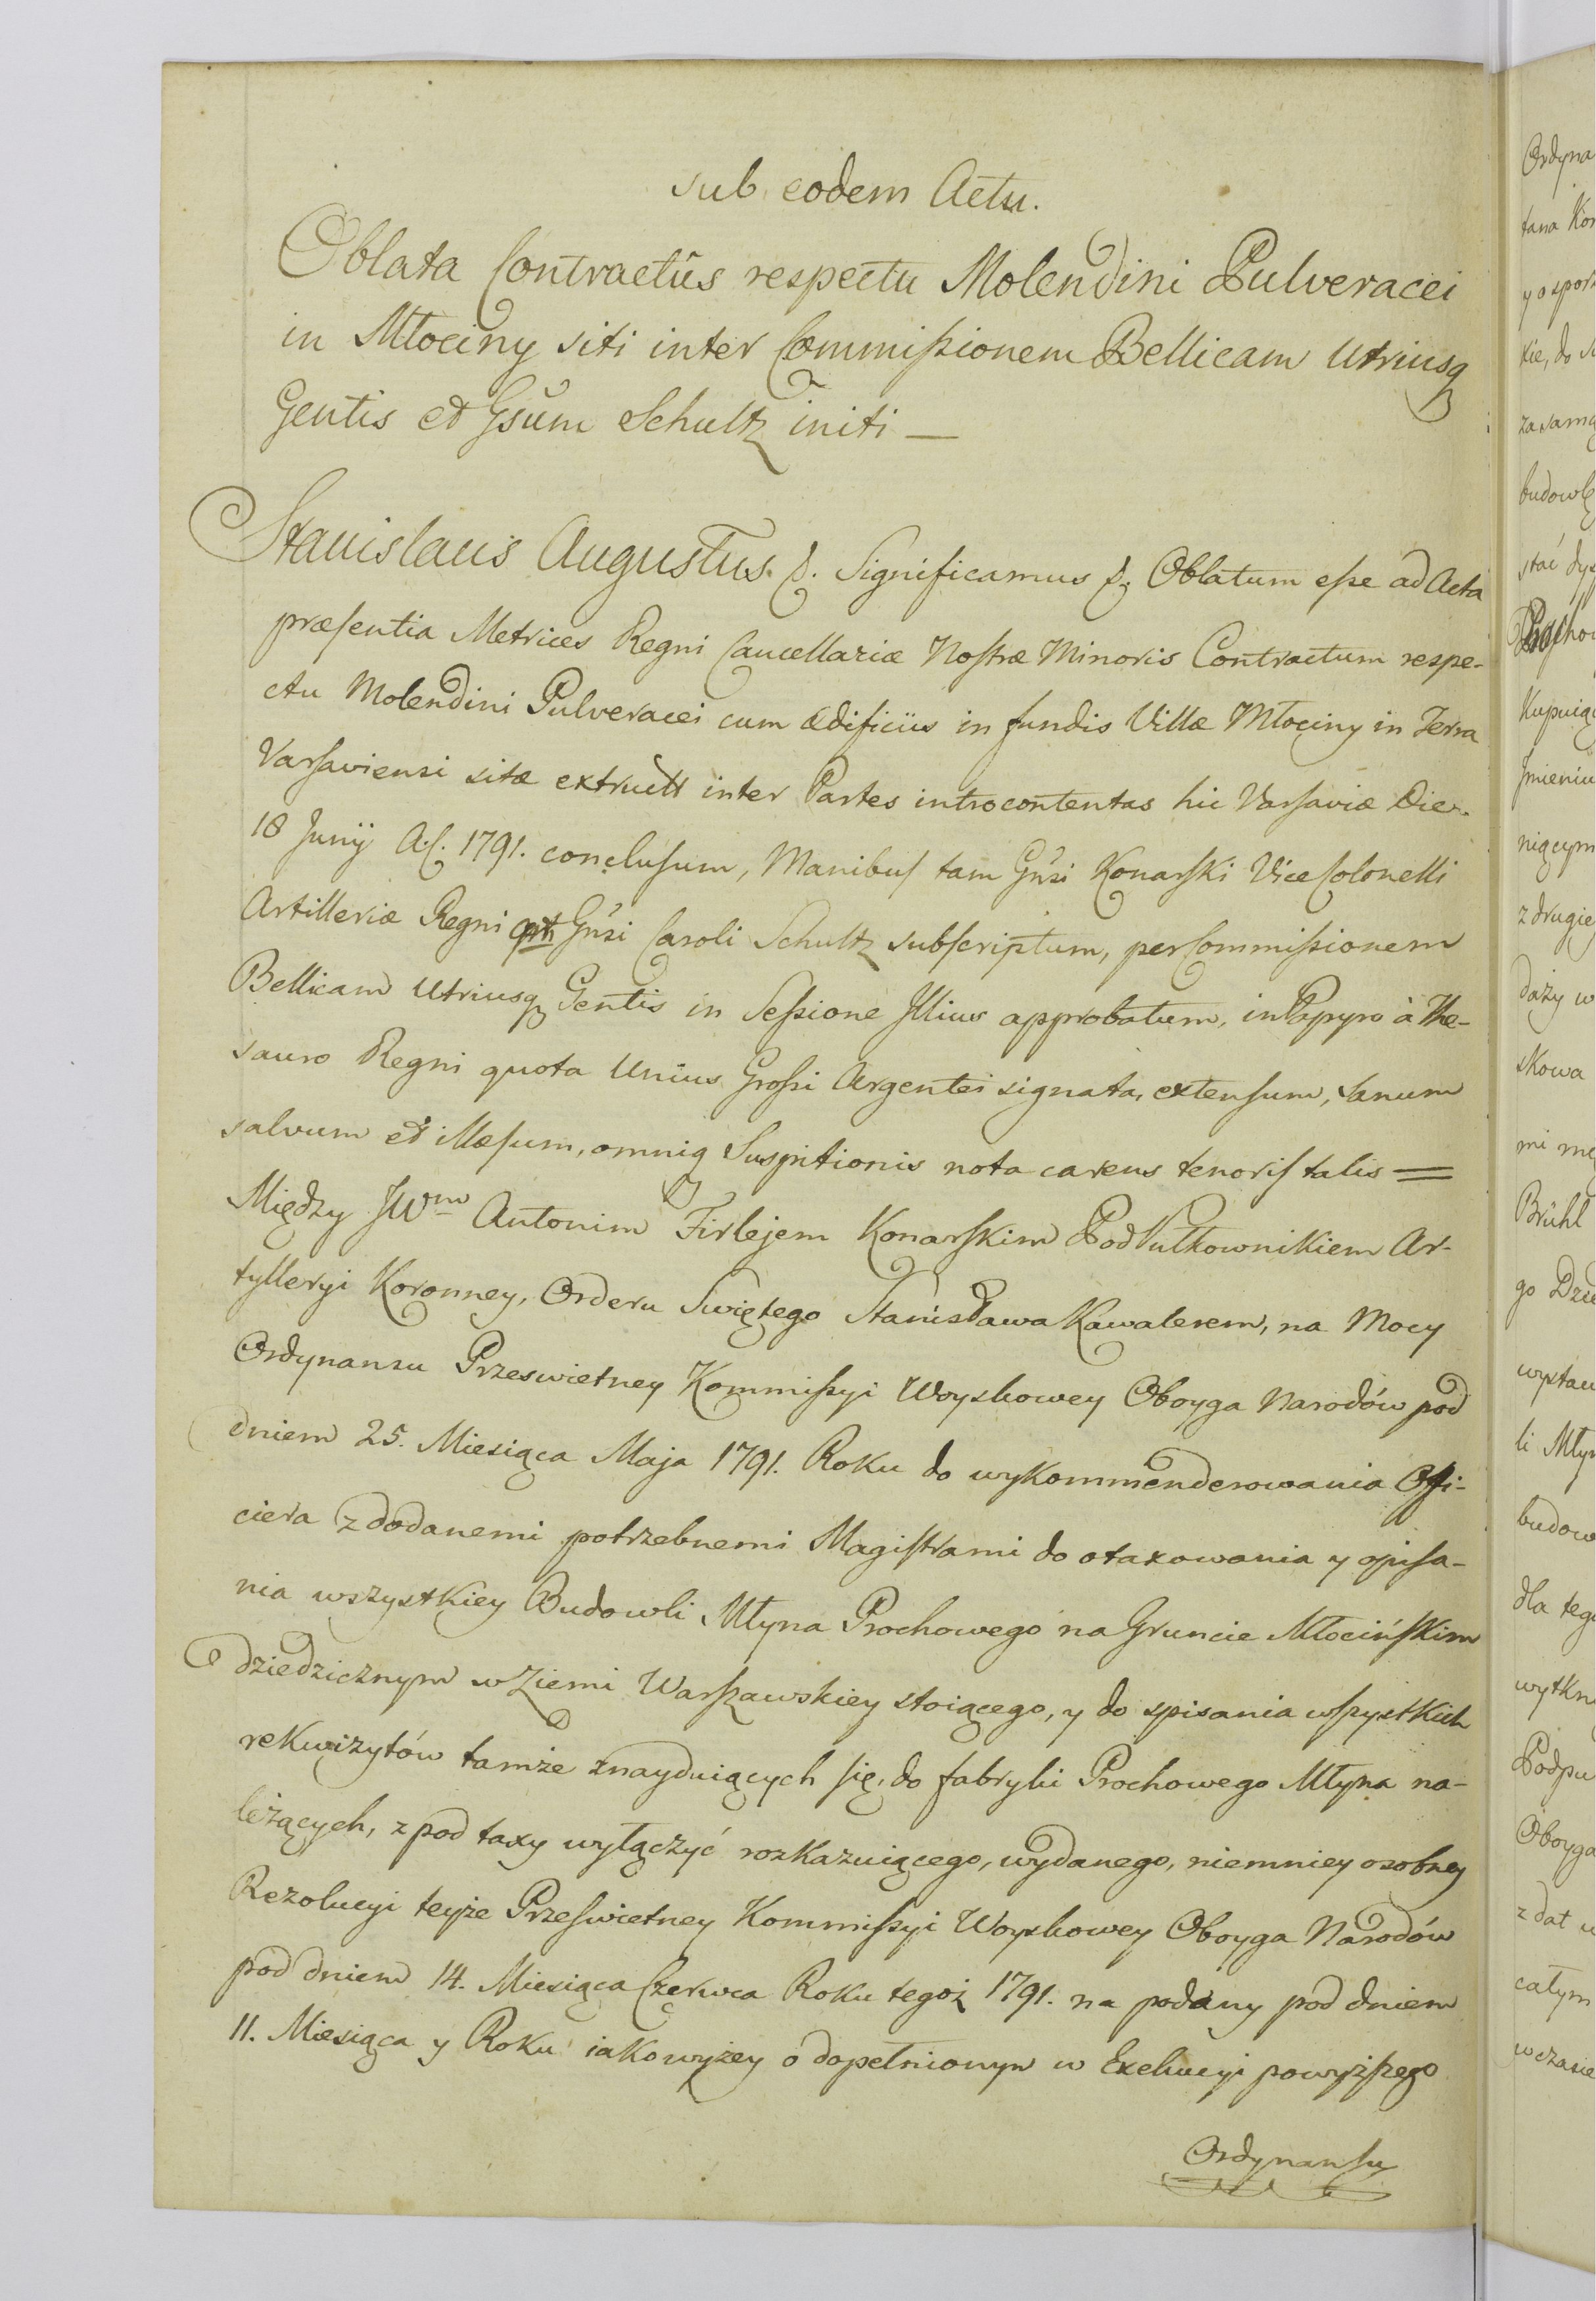 sub eodem Actu.
Oblata Contractûs respectu Molendini Pulveracei
in Młociny siti inter Commissionem Bellicam Utriusq
Gentis et Gsum Schultz initi —
Stanislaus Augustus &. Significamus &. Oblatum esse ad Acta
præsentia Metrices Regni Cancellariæ Nostræ Minoris Contractum respe-
ctu Molendini Pulveracei cum ædificiis in fundis Villæ Młociny in Terra
Varsaviensi sitæ extructi inter Partes introcontentas hic Varsaviæ Die
18 Junij A.C. 1791. conclusum, Manibus tam Gñsi Konarski Vice Colonelli
Artilleriæ Regni Gñsi Caroli Schultz subscriptum, per Commissionem
Bellicam Utriusq Gentis in Sessione Illius approbatum, in Papyro à The-
sauro Regni quota Unius Grossi Argentei signata, extensum, sanum
salvum et illæsum, omniq Suspitionis nota carens tenoris talis =
Między JWm Antonim Firlejem Konarskim Podpułkownikiem Ar-
tylleryi Koronney, Orderu Swiętego Stanisława Kawalerem, na Mocy
Ordynansu Przeswietney Kommissyi Woyskowey Oboyga Narodów pod
dniem 25. Miesiąca Maja 1791. Roku do wykommenderowania Offi-
ciera z dodanemi potrzebnemi Magistrami do otaxowania y opisa-
nia wszystkiey Budowli Młyna Prochowego na Gruncie Młocińskim
dziedzicznym w Ziemi Warszawskiey stoiącego, y do spisania wszystkich
rekwizytów tamże znayduiących się, do fabryki Prochowego Młyna na-
leżących, z pod taxy wyłączyć rozkazuiącego, wydanego, niemniey osobney
Rezolucyi teyże Przeswietney Kommissyi Woyskowey Oboyga Narodów
pod dniem 14. Miesiąca Czerwca Roku tegoż 1791. na podany pod dniem
11. Miesiąca y Roku iako wyżey o dopełnionym w Exekucyi powyższego
Ordynansu